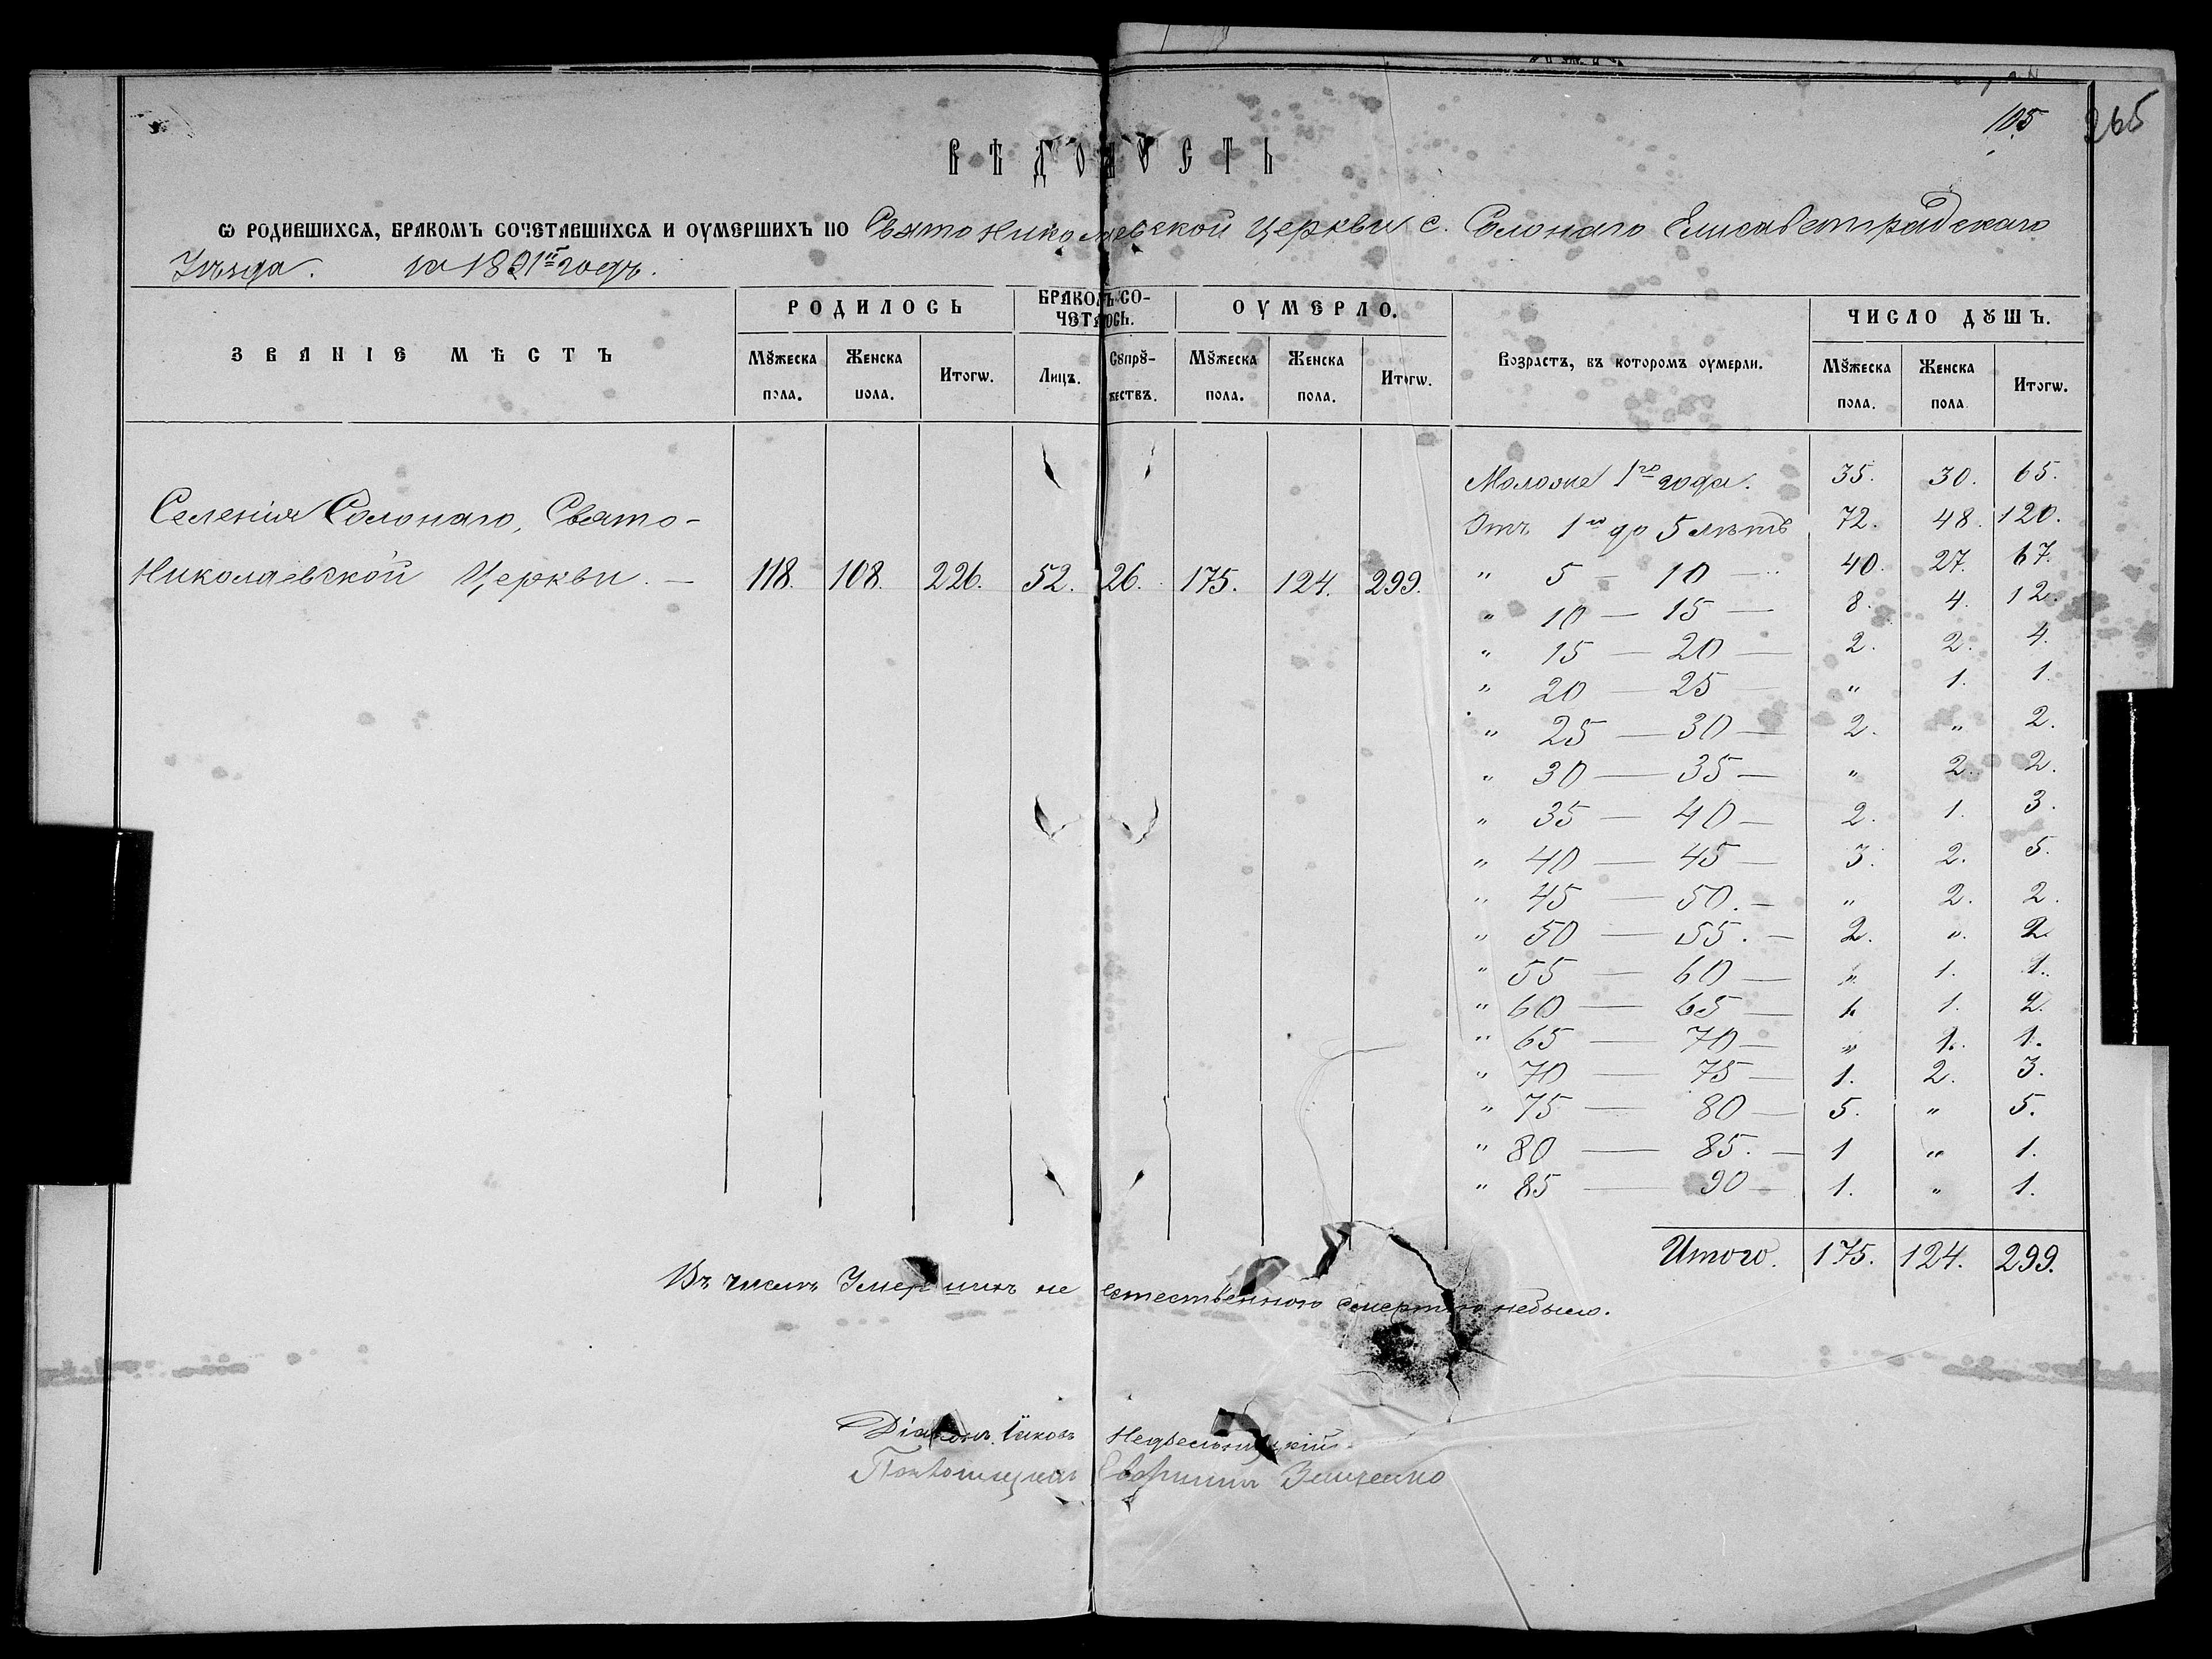 105
265
ВѢДОМОСТЬ
Ѡ РОДИВШИХСѦ, БРАКОМЪ СОЧЕТАВШИХСѦ И ОУМЕРШИХЪ ПО Свято Николаевской Церкви с. Солонаго Елисаветградскаго
Уѣзда. за 1891й годъ.
ЗВАНІЕ МѢСТЪ
РОДИЛОСЬ
БРАКОМЪ СО-
ЧЕТАЛОСЬ.
ОУМЕРЛО.
Возрастъ, въ которомъ оумерли.
ЧИСЛО ДꙊШЪ.
Мꙋжеска пола. Женска пола. Итогѡ. Лицъ. Сꙋпрꙋ- жествъ. Мꙋжеска пола. Женска пола. Итогѡ. Мꙋжеска пола. Женска пола. Итогѡ.
Селенія Солонаго, Свято-
Николаевской Церкви. — 118. 108. 226. 52. 26. 175. 124. 299.
Моложе 1го года. 35. 30. 65.
Отъ 1го до 5 лѣтъ 72. 48. 120.
" 5 — 10 — 40. 27. 67.
" 10 — 15 — 8. 4. 12.
" 15 — 20 — 2. 2. 4.
" 20 — 25 — " 1. 1.
" 25 — 30 — 2. " 2.
" 30 — 35 — " 2. 2.
" 35 — 40 — 2. 1. 3.
" 40 — 45 — 3. 2. 5.
" 45 — 50. — " 2. 2.
" 50 — 55. — 2. ". 2
" 55 — 60 — " 1. 1.
" 60 — 65 — 1. 1. 2.
" 65 — 70 — " 1. 1.
" 70 — 75 — 1. 2. 3.
" 75 — 80 — 5. " 5.
" 80 — 85. — 1 " 1.
" 85 — 90 — 1. " 1.
Итого. 175. 124. 299.
Въ числѣ Умершихъ не естественною смертію небыло.
Діаконъ Іаковъ
Евфимій